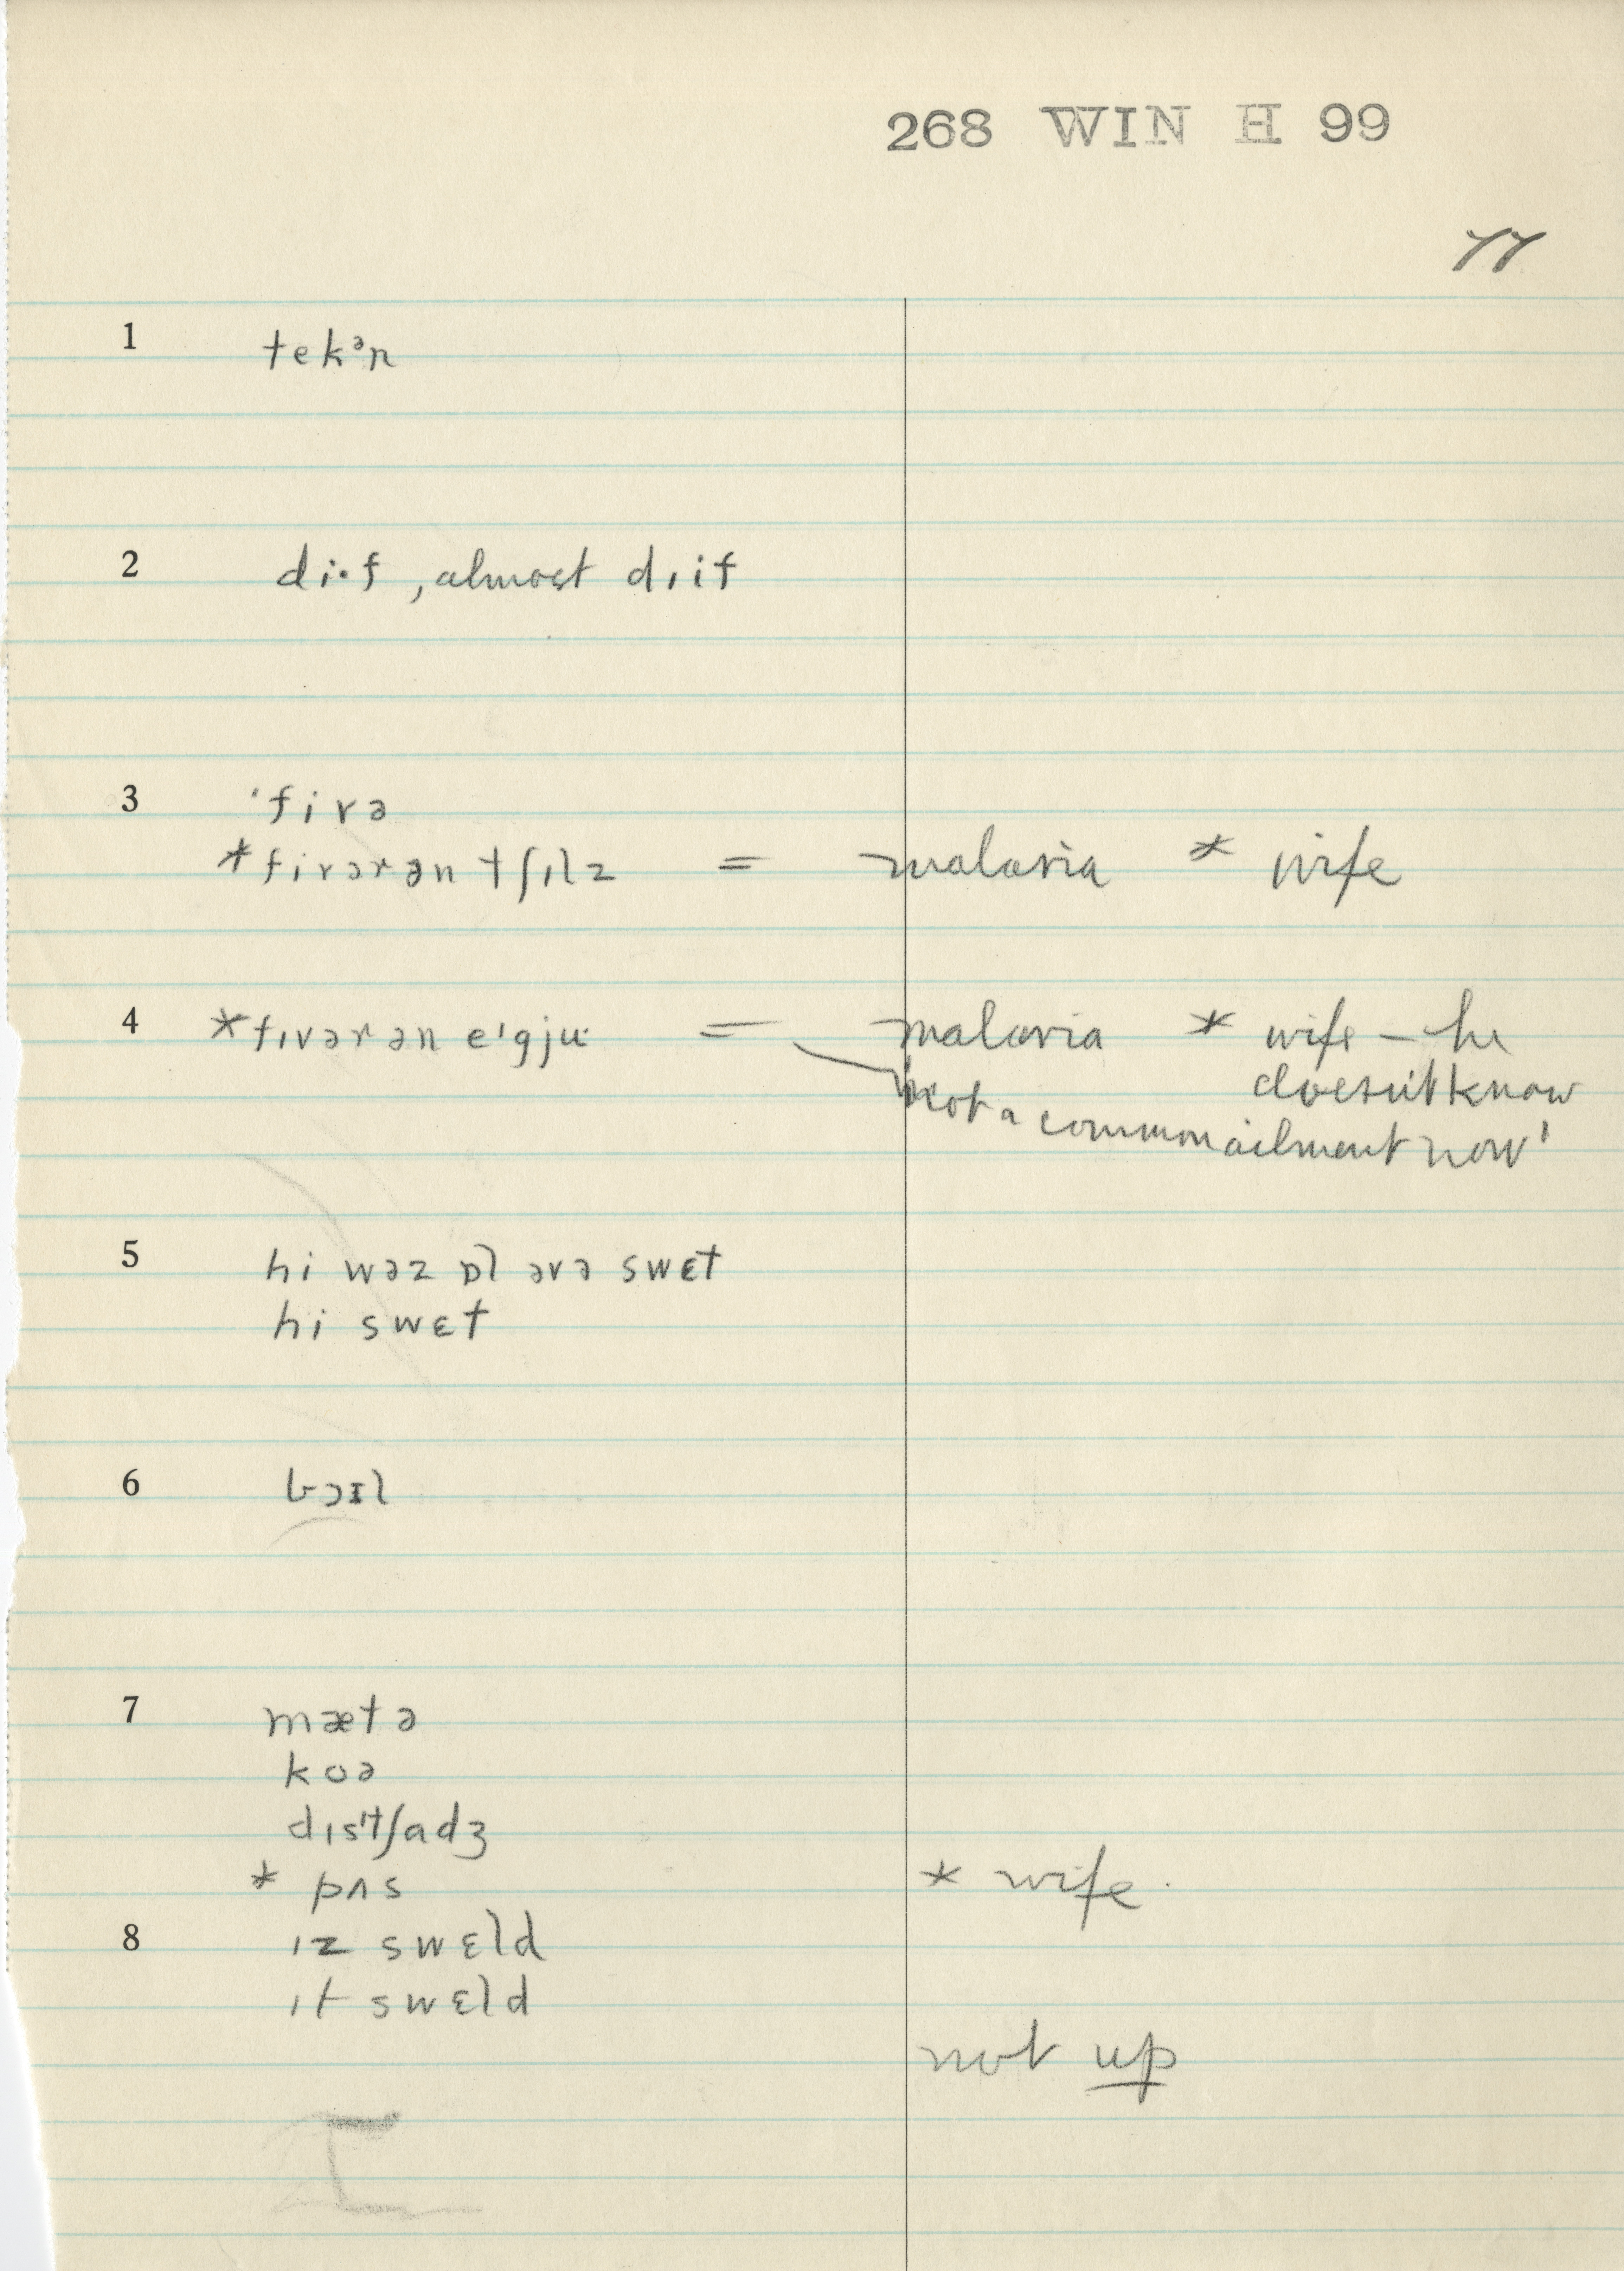 268 WIN H 99
77
1 tekᵊn
2 di·f , almost dɪif
3 'fivə
*fivərən tʃɪlz = malaria * wife
4 *fɪvərən e'gju· = malaria * wife – he
doesn't know
not a common ailment now'
5 hi wəz ɒl əvə swɛt
hi swɛt
6 bɔɪl
7 mætə
kʊə
dɪs'tʃadʒ
* pʌs * wife.
8 ɪz swɛld
ɪt swɛld
not up